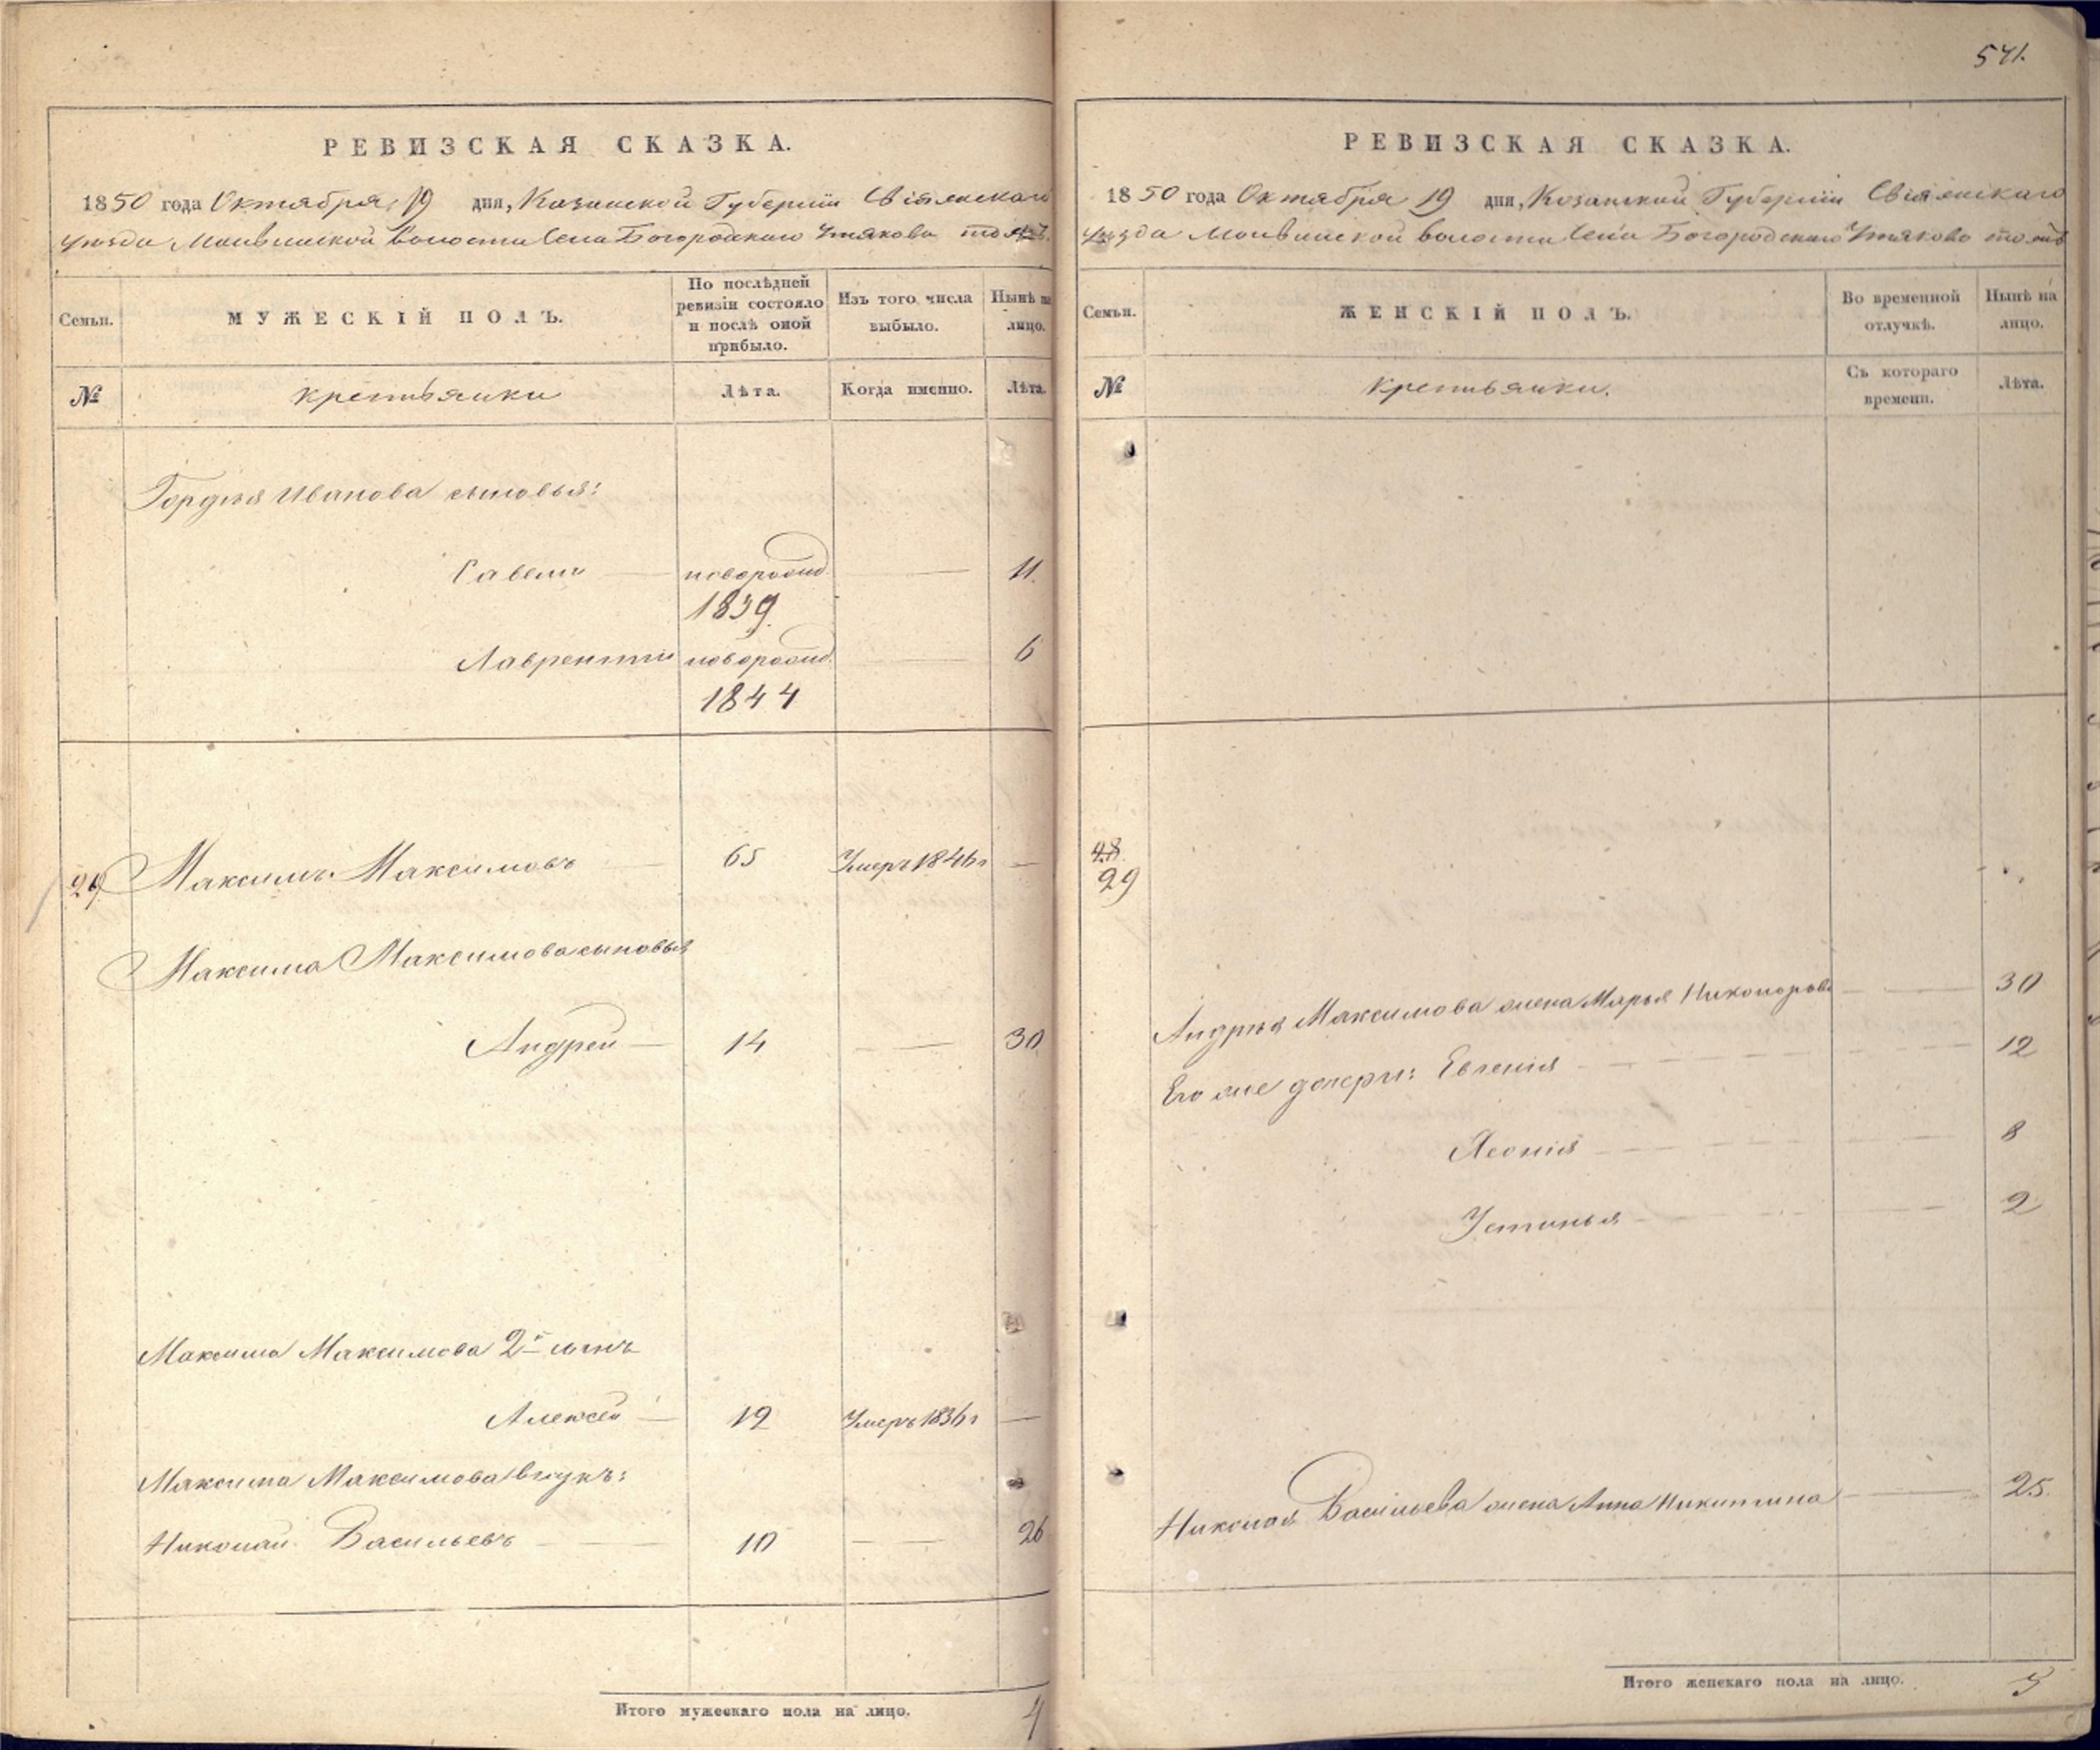 541.
РЕВИЗСКАЯ СКАЗКА.
1850 года Октября 19 дня, Казанской Губернiи Свiяжскаго
уѣзда волости Села Богородскаго Утякова тожъ
Семьи.
МУЖЕСКIЙ ПОЛЪ.
По послѣдней ревизiи состояло и послѣ оной прибыло.
Изъ того числа выбыло.
Нынѣ на лицо.
№
крестьянки
Лѣта.
Когда именно.
Лѣта.
Гордѣя Иванова сыновья:
Савели новорожд. 11.
1839.
Лаврентiи новорожд. 6
1844
29 Максимъ Максимовъ 65 Умеръ 1846 г
Максима Максимова сыновья
Андрей 14 30
Максима Максимова 2й сынъ
Алексей 12 Умеръ 1836 г
Максима Максимова внукъ:
Николай Васильевъ 10 26
Итого мужескаго пола на лицо. 4
РЕВИЗСКАЯ СКАЗКА.
1850 года Октября 19 дня, Казанской Губернiи Свiяжскаго
уѣзда волости Села Богородскаго Утяково тожъ
Семьи.
ЖЕНСКIЙ ПОЛЪ.
Во временной отлучкѣ.
Нынѣ на лицо.
№
крестьянки.
Съ котораго времени.
Лѣта.
48.
29
Андрѣя Максимова жена Марья Никонорова 30
Его же дочери: Евгенiя 12
Леонiя 8
Устинья 2
Николая Васильева жена Анна Никитина 25.
Итого женскаго пола на лицо. 5